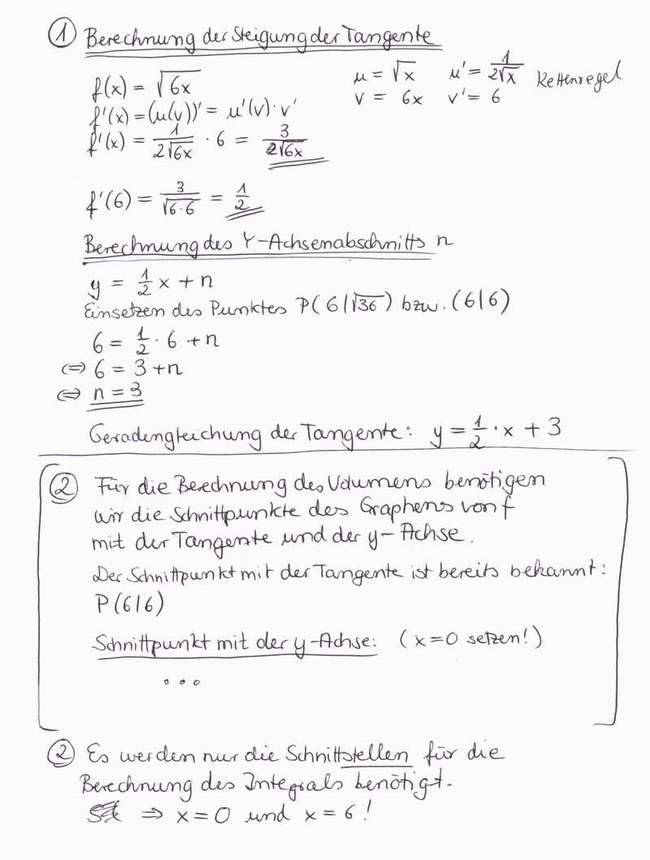 ① Berechnung der Steigung der Tangente
f(x) = √6x
u = √x u' = 1/(2√x) Kettenregel
v = 6x v' = 6
f'(x) = (u(v))' = u'(v) · v'
f'(x) = 1/(2√6x) · 6 = 3/(2√6x)
f'(6) = 3/√(6·6) = 1/2
Berechnung des Y-Achsenabschnitts n
y = 1/2 x + n
Einsetzen des Punktes P(6|√36) bzw. (6|6)
6 = 1/2 · 6 + n
⇔ 6 = 3 + n
⇔ n = 3
Geradengleichung der Tangente: y = 1/2 · x + 3
② Für die Berechnung des Volumens benötigen
wir die Schnittpunkte des Graphens von f
mit der Tangente und der y-Achse.
Der Schnittpunkt mit der Tangente ist bereits bekannt:
P(6|6)
Schnittpunkt mit der y-Achse: (x=0 setzen!)
...
② Es werden nur die Schnittstellen für die
Berechnung des Integrals benötigt.
⇒ x=0 und x=6!